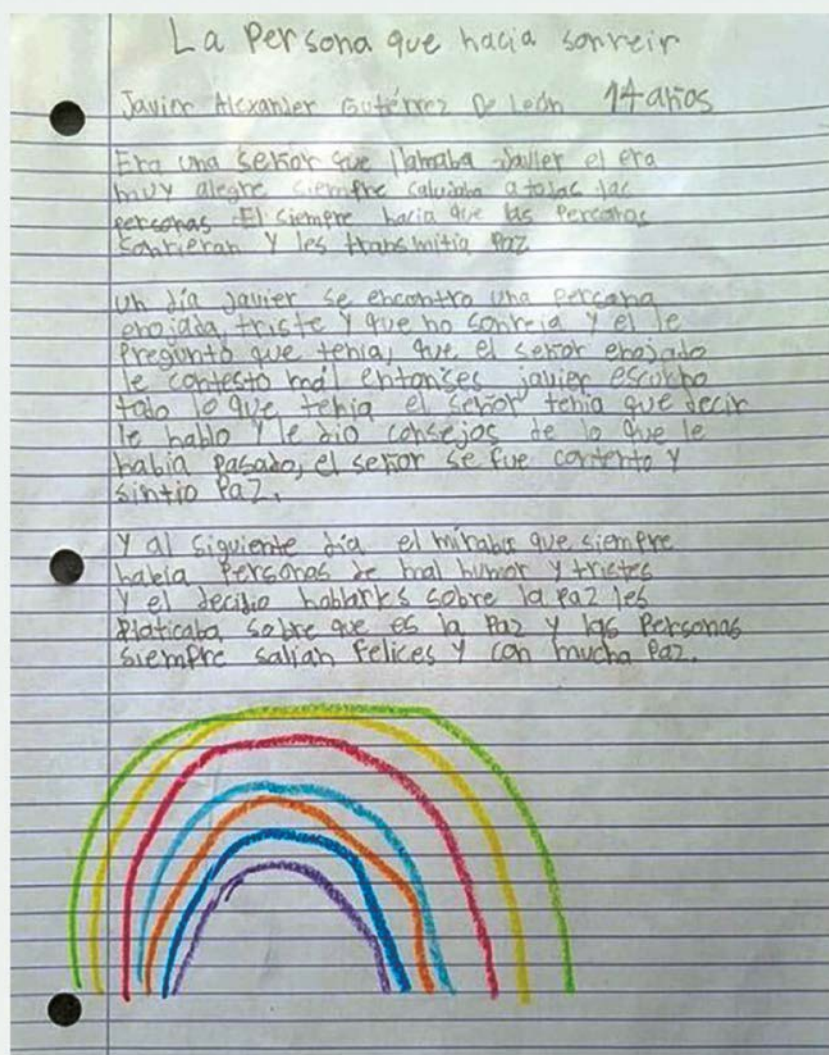 La Persona que hacia sonreir
Javier Alexander Gutérrez De León 14 años
Era una señor que llamaba Javier el era
muy alegre siempre saludaba a todas las
personas. El siempre hacia que las personas
sonrieran y les transmitia Paz
Un día Javier se encontro una persona
enojada, triste y que no sonreia y el le
Pregunto que tenia, que el señor enojado
le contesto mal entonses javier escucho
todo lo que tenia el señor tenia que decir
le hablo y le dio consejos de lo que le
habia pasado, el señor se fue contento y
sintio Paz.
Y al siguiente dia el miraba que siempre
habia Personas de mal humor y tristes
y el decidio hablarles sobre la paz les
Platicaba sobre que es la Paz y las Personas
siempre salian felices y con mucha Paz.